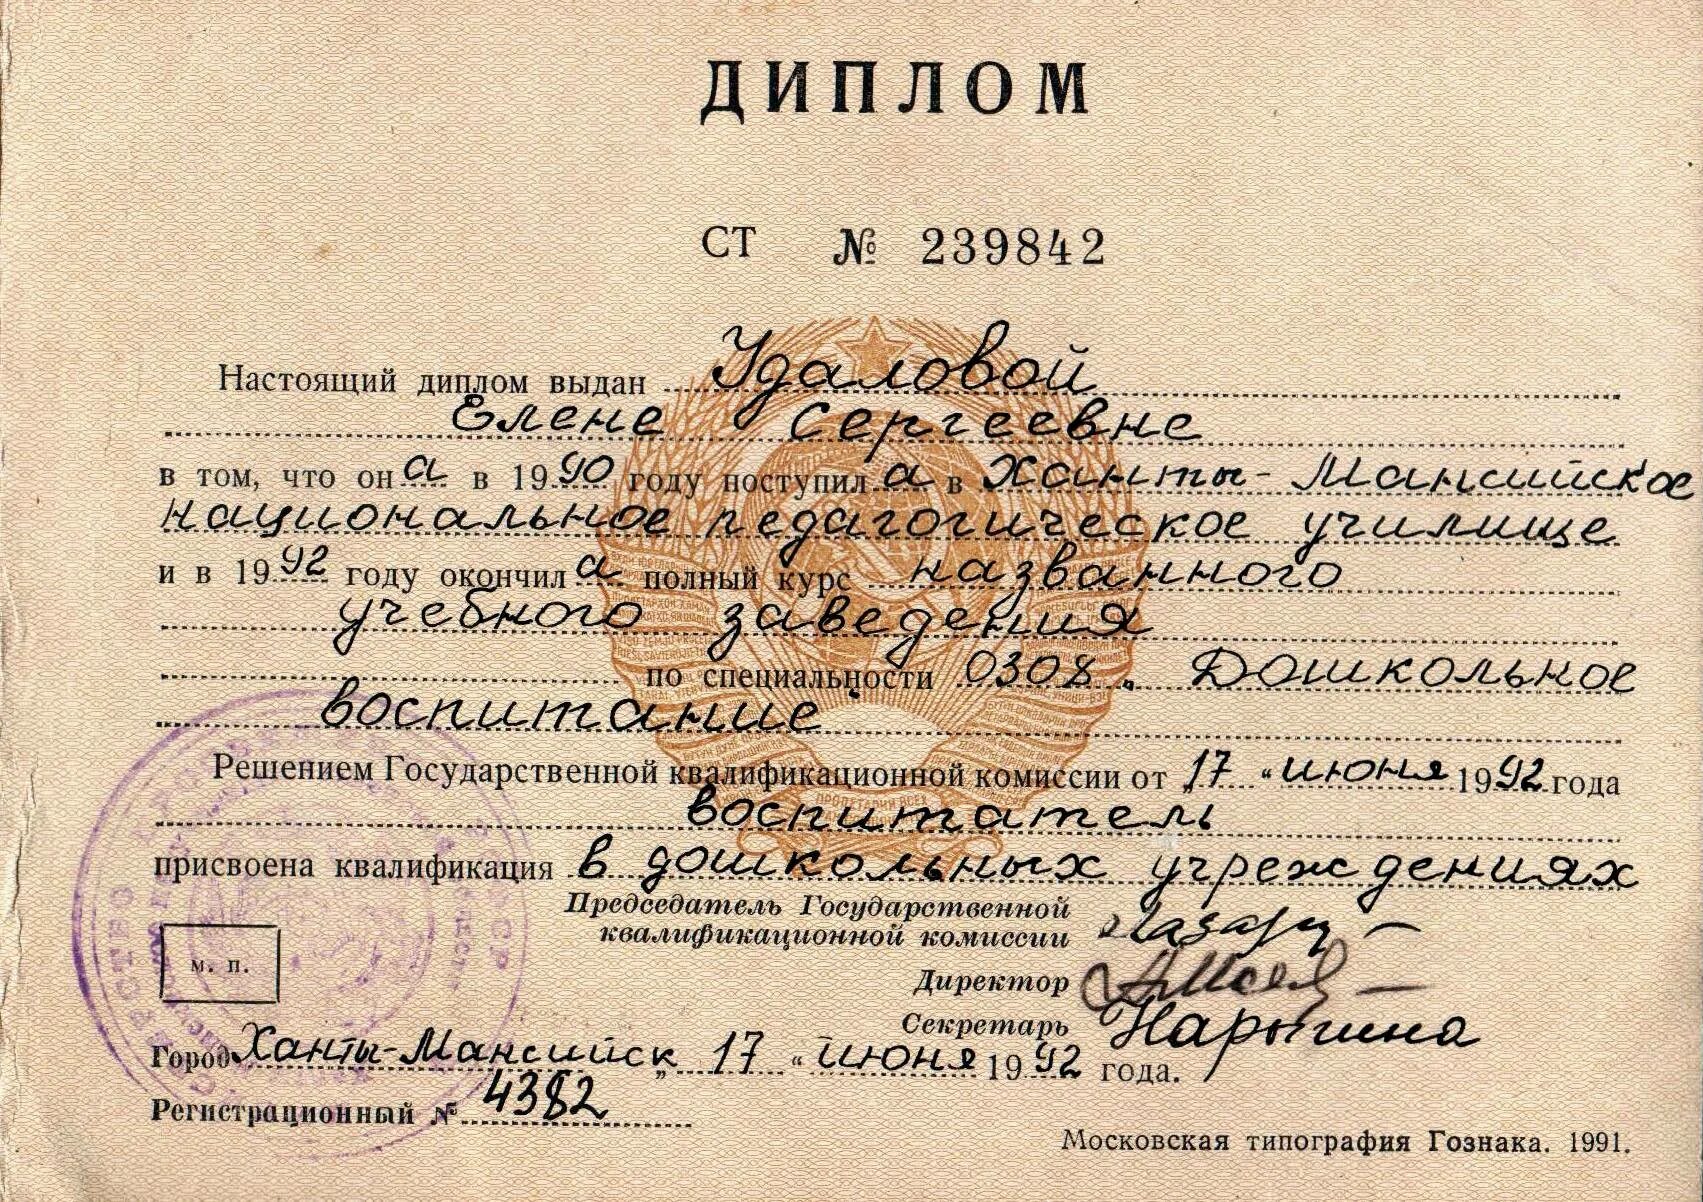 ДИПЛОМ
СТ № 239842
Настоящий диплом выдан Удаловой
Елене Сергеевне
в том, что он а в 19 90 году поступил а в Ханты-Мансийское
национальное педагогическое училище
и в 19 92 году окончил а полный курс названного
учебного заведения
по специальности 0308 „ Дошкольное
воспитание
Решением Государственной квалификационной комиссии от „ 17 “ июня 19 92 года
воспитатель
присвоена квалификация в дошкольных учреждениях
Председатель Государственной
квалификационной комиссии
Директор
Секретарь Нарыгина
м. п.
Город Ханты-Мансийск „ 17 “ июня 19 92 года.
Регистрационный № 4382
Московская типография Гознака. 1991.